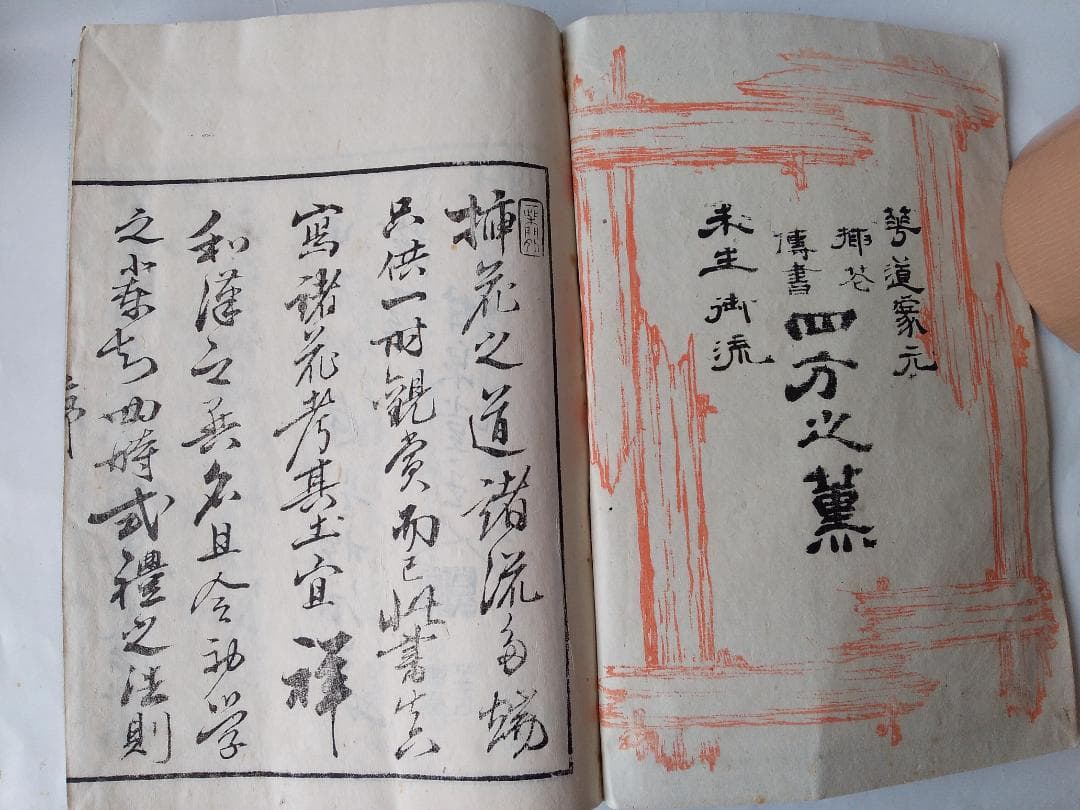 華道家元
挿花
傳書
四方之薫
未生御流
挿花之道諸流多端
只供一時觀賞而已此書真
寫諸花考其土宜詳
和漢之異名且令初学
之輩知四時式禮之法則
序